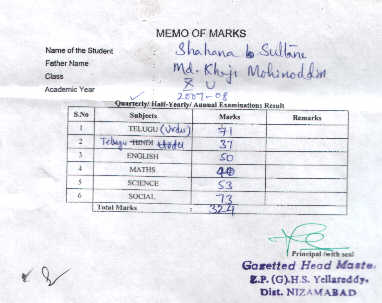 MEMO OF MARKS
Name of the Student : Shahana Sultana
Father Name : Md. Khaji Mohinoddin
Class : X U
Academic Year 2007-08
Quarterly/ Half-Yearly/ Annual Examinations Result
S.No Subjects Marks Remarks
1 TELUGU (Urdu) 71
2 Telugu HINDI 37
3 ENGLISH 50
4 MATHS 40
5 SCIENCE 53
6 SOCIAL 73
Total Marks : 324
Principal (with seal
Gazetted Head Maste.
Z.P. (G).H.S. Yellareddy.
Dist. NIZAMABAD